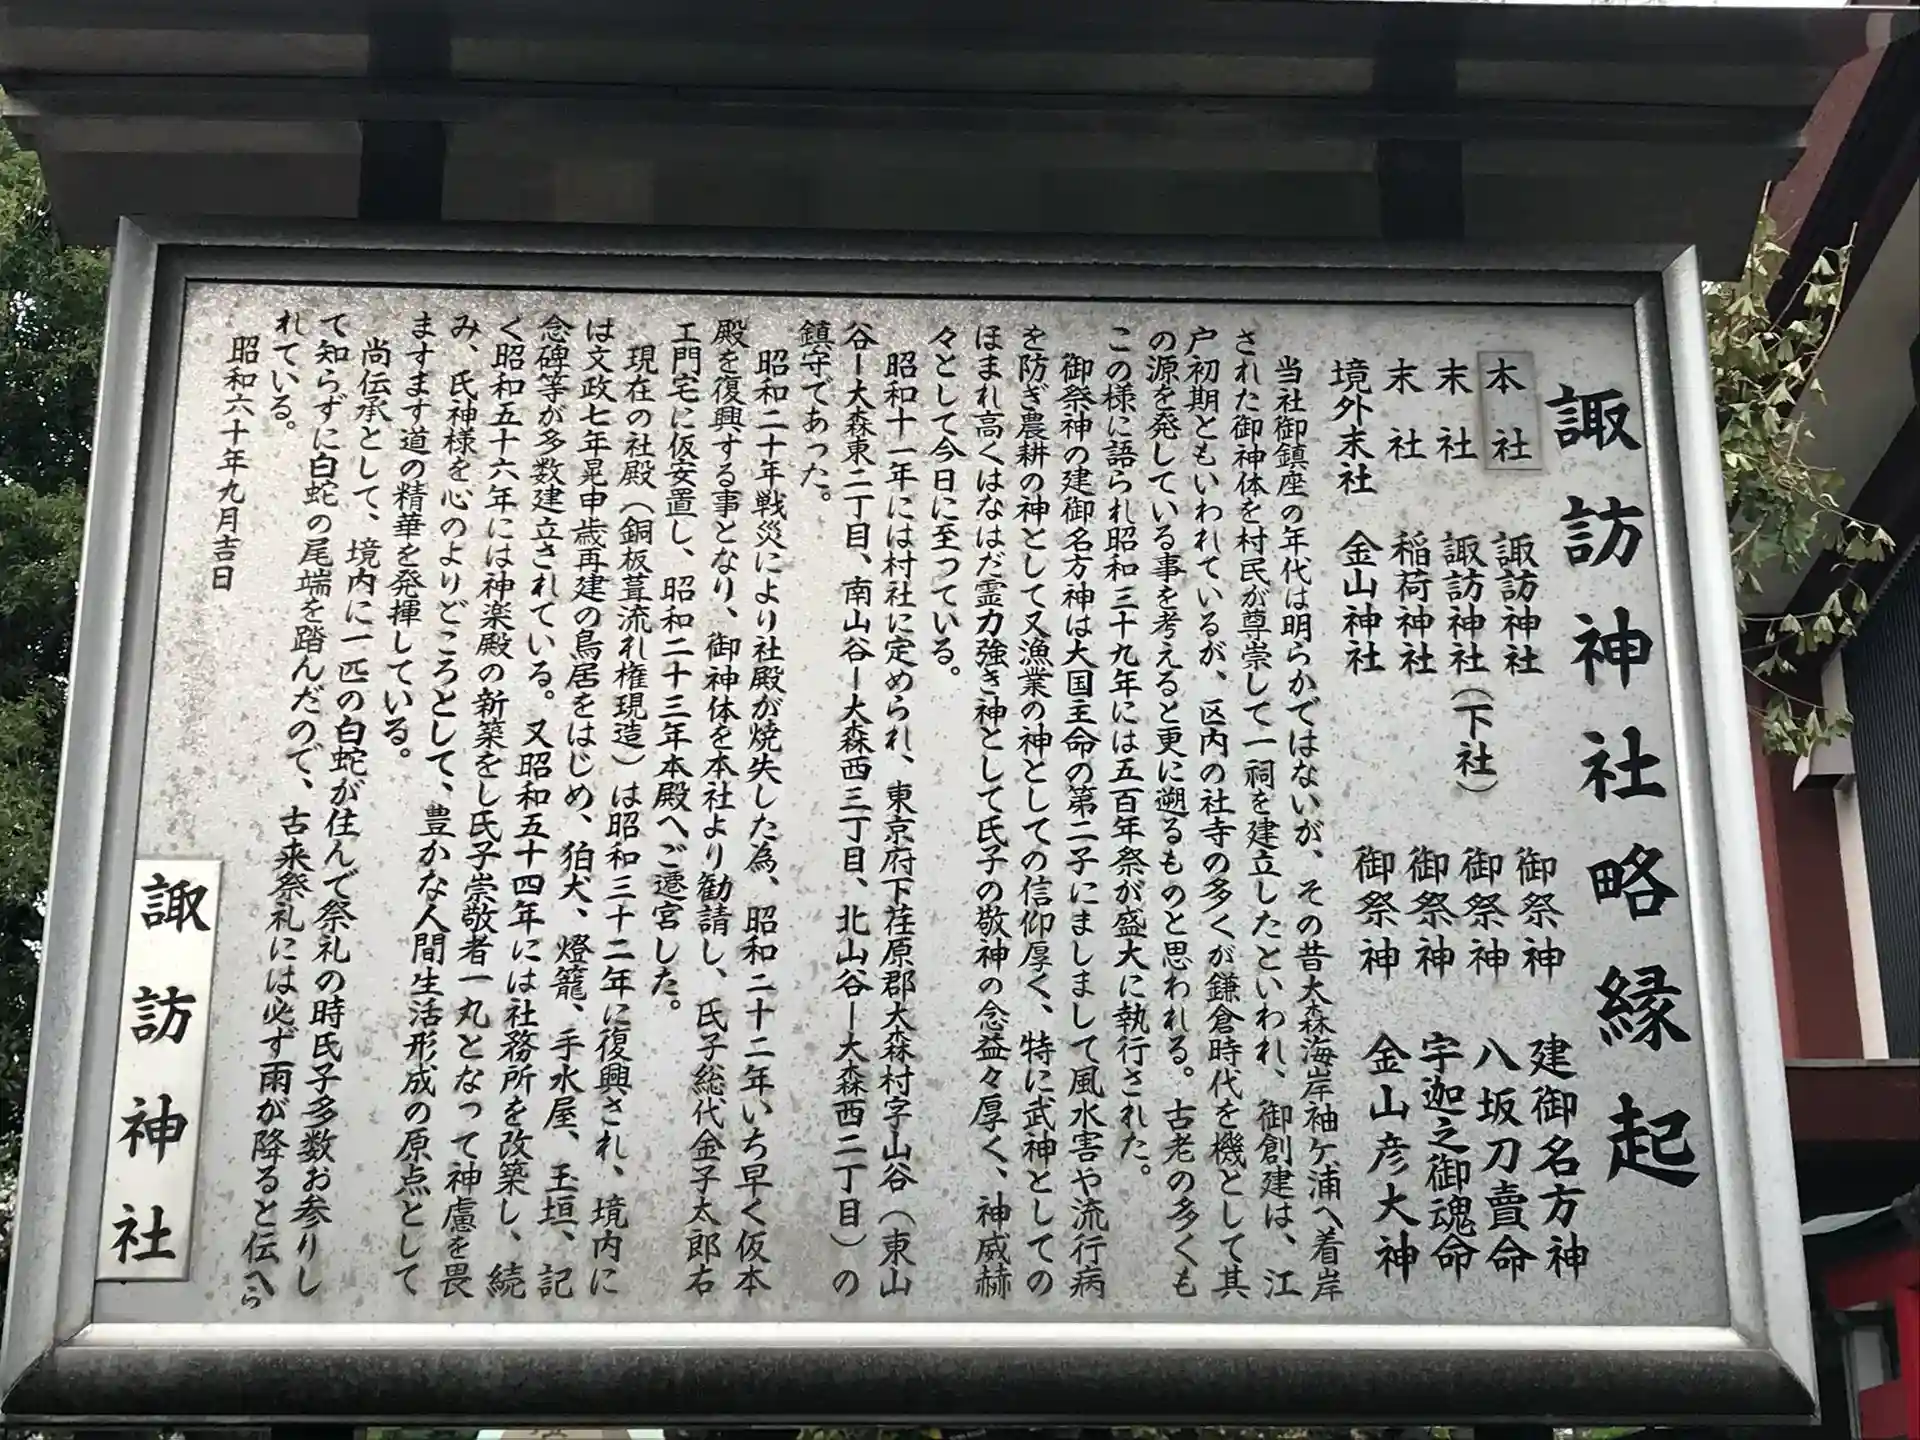 諏訪神社略縁起
本社 諏訪神社 御祭神 建御名方神
末社 諏訪神社(下社) 御祭神 八坂刀賣命
末社 稲荷神社 御祭神 宇迦之御魂命
境外末社 金山神社 御祭神 金山彦大神
当社御鎮座の年代は明らかではないが、その昔大森海岸袖ケ浦へ着岸
された御神体を村民が尊崇して一祠を建立したといわれ、御創建は、江
戸初期ともいわれているが、区内の社寺の多くが鎌倉時代を機として其
の源を発している事を考えると更に遡るものと思われる。古老の多くも
この様に語られ昭和三十九年には五百年祭が盛大に執行された。
御祭神の建御名方神は大国主命の第二子にましまして風水害や流行病
を防ぎ農耕の神として又漁業の神としての信仰厚く、特に武神としての
ほまれ高くはなはだ霊力強き神として氏子の敬神の念益々厚く、神威赫
々として今日に至っている。
昭和十一年には村社に定められ、東京府下荏原郡大森村字山谷(東山
谷ー大森東二丁目、南山谷ー大森西三丁目、北山谷ー大森西二丁目)の
鎮守であった。
昭和二十年戦災により社殿が焼失した為、昭和二十二年いち早く仮本
殿を復興する事となり、御神体を本社より勧請し、氏子総代金子太郎右
エ門宅に仮安置し、昭和二十三年本殿へご遷宮した。
現在の社殿(銅板葺流れ権現造)は昭和三十二年に復興され、境内に
は文政七年晃申歳再建の鳥居をはじめ、狛犬、燈籠、手水屋、玉垣、記
念碑等が多数建立されている。又昭和五十四年には社務所を改築し、続
く昭和五十六年には神楽殿の新築をし氏子崇敬者一丸となって神慮を畏
み、氏神様を心のよりどころとして、豊かな人間生活形成の原点として
ますます道の精華を発揮している。
尚伝承として、境内に一匹の白蛇が住んで祭礼の時氏子多数お参りし
て知らずに白蛇の尾端を踏んだので、古来祭礼には必ず雨が降ると伝へら
れている。
昭和六十年九月吉日
諏訪神社